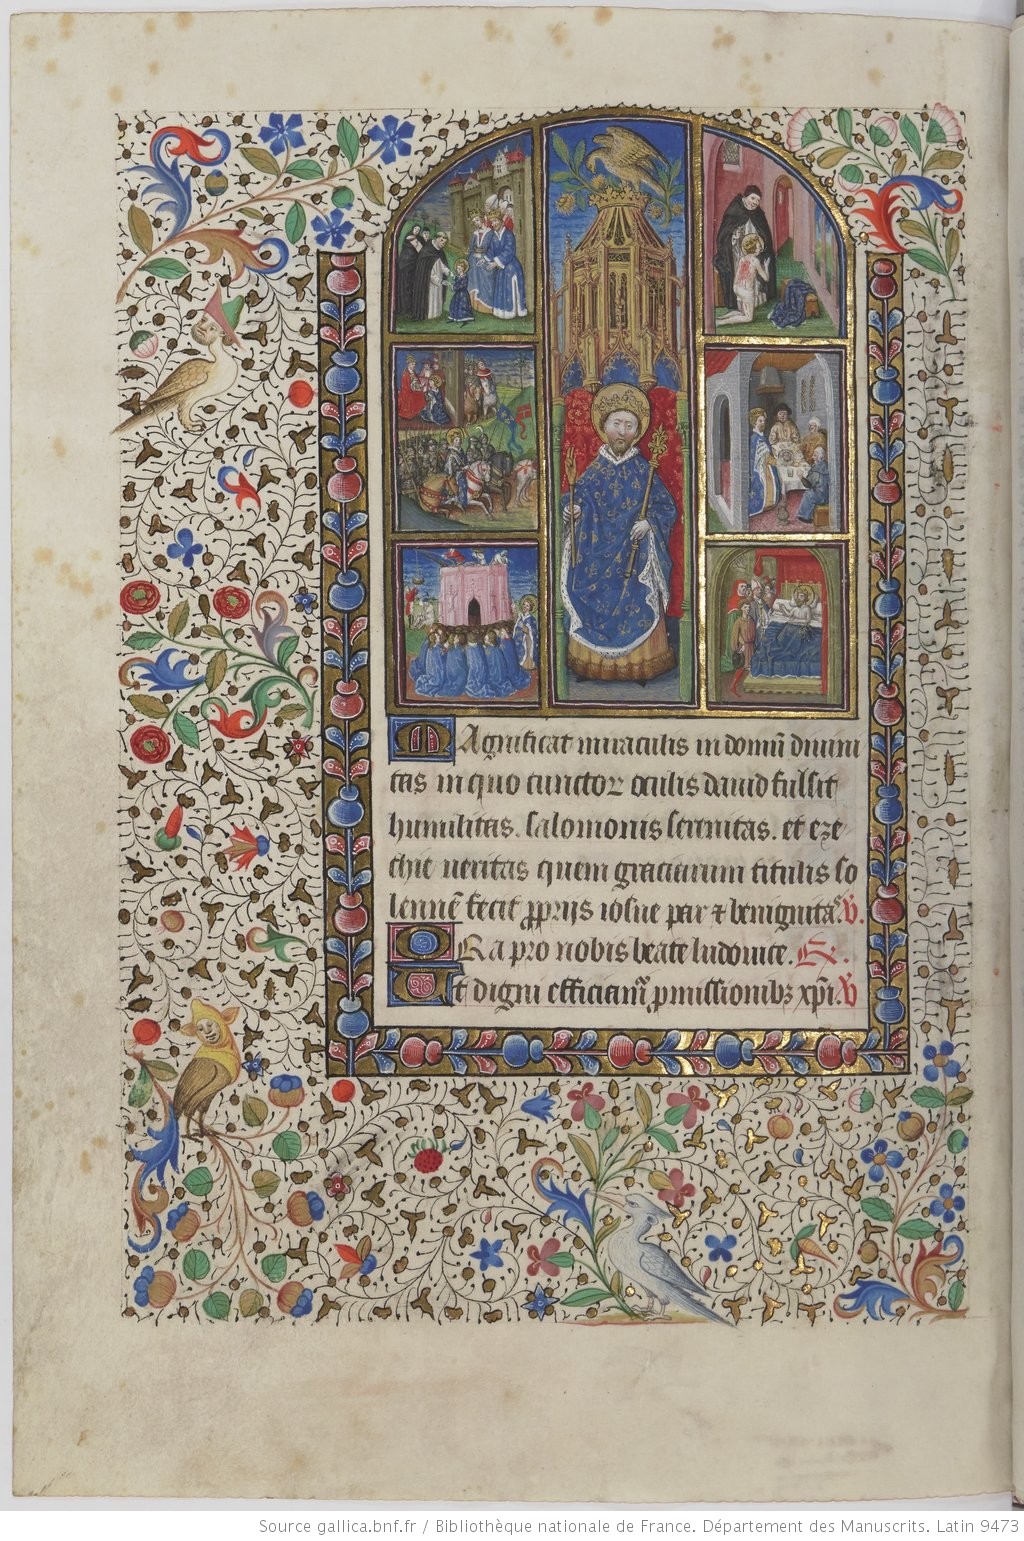 MAgnificat miraculis in domū diuini
tas in quo cunctoꝝ oculis dauid fulsit
humilitas. salomonis serenitas. et eze-
chie ueritas quem graciarum titulis so
lennē fecit ꝓprijs iosue par ⁊ benignitas. ℣.
ORa pro nobis beate ludouice. ℟.
Et digni efficiamꝰ ꝓmissionibꝫ xp̄i. ℣
Source gallica.bnf.fr / Bibliothèque nationale de France. Département des Manuscrits. Latin 9473